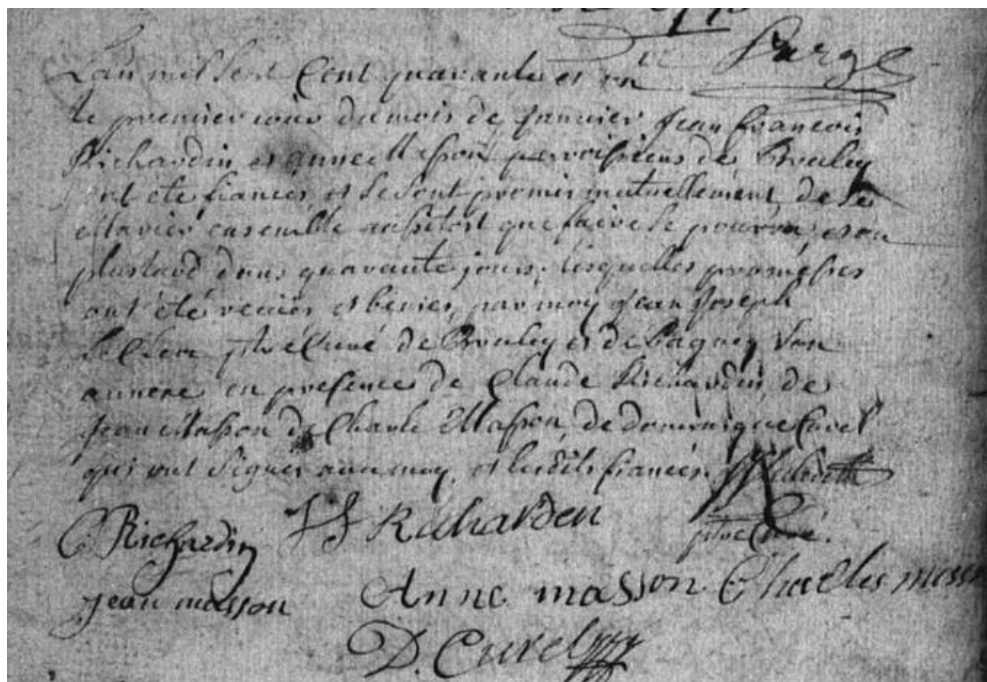 Lan mil sept Cent quarante et un
le premier iour du mois de Janvier Jean francois
Richardin et Anne Masson paroissiens de Bouley
ont été fiancés et se sont promis mutuellement de se
Marier ensemble aussitost que faire se pourra, et au
plus tard dans quarante jours. lesquelles promesses
ont été recües et benies par moy Jean Joseph
ptre Curé de Bouley et de Pagney son
annexe en presence de Claude Richardin, de
Jean Masson de Charle Masson, de dominique Curel
qui ont signés avec moy, et lesdits fiancés.
C Richardin J f Richarden ptre Curé.
jean masson Anne masson Charles masson
D. Curel